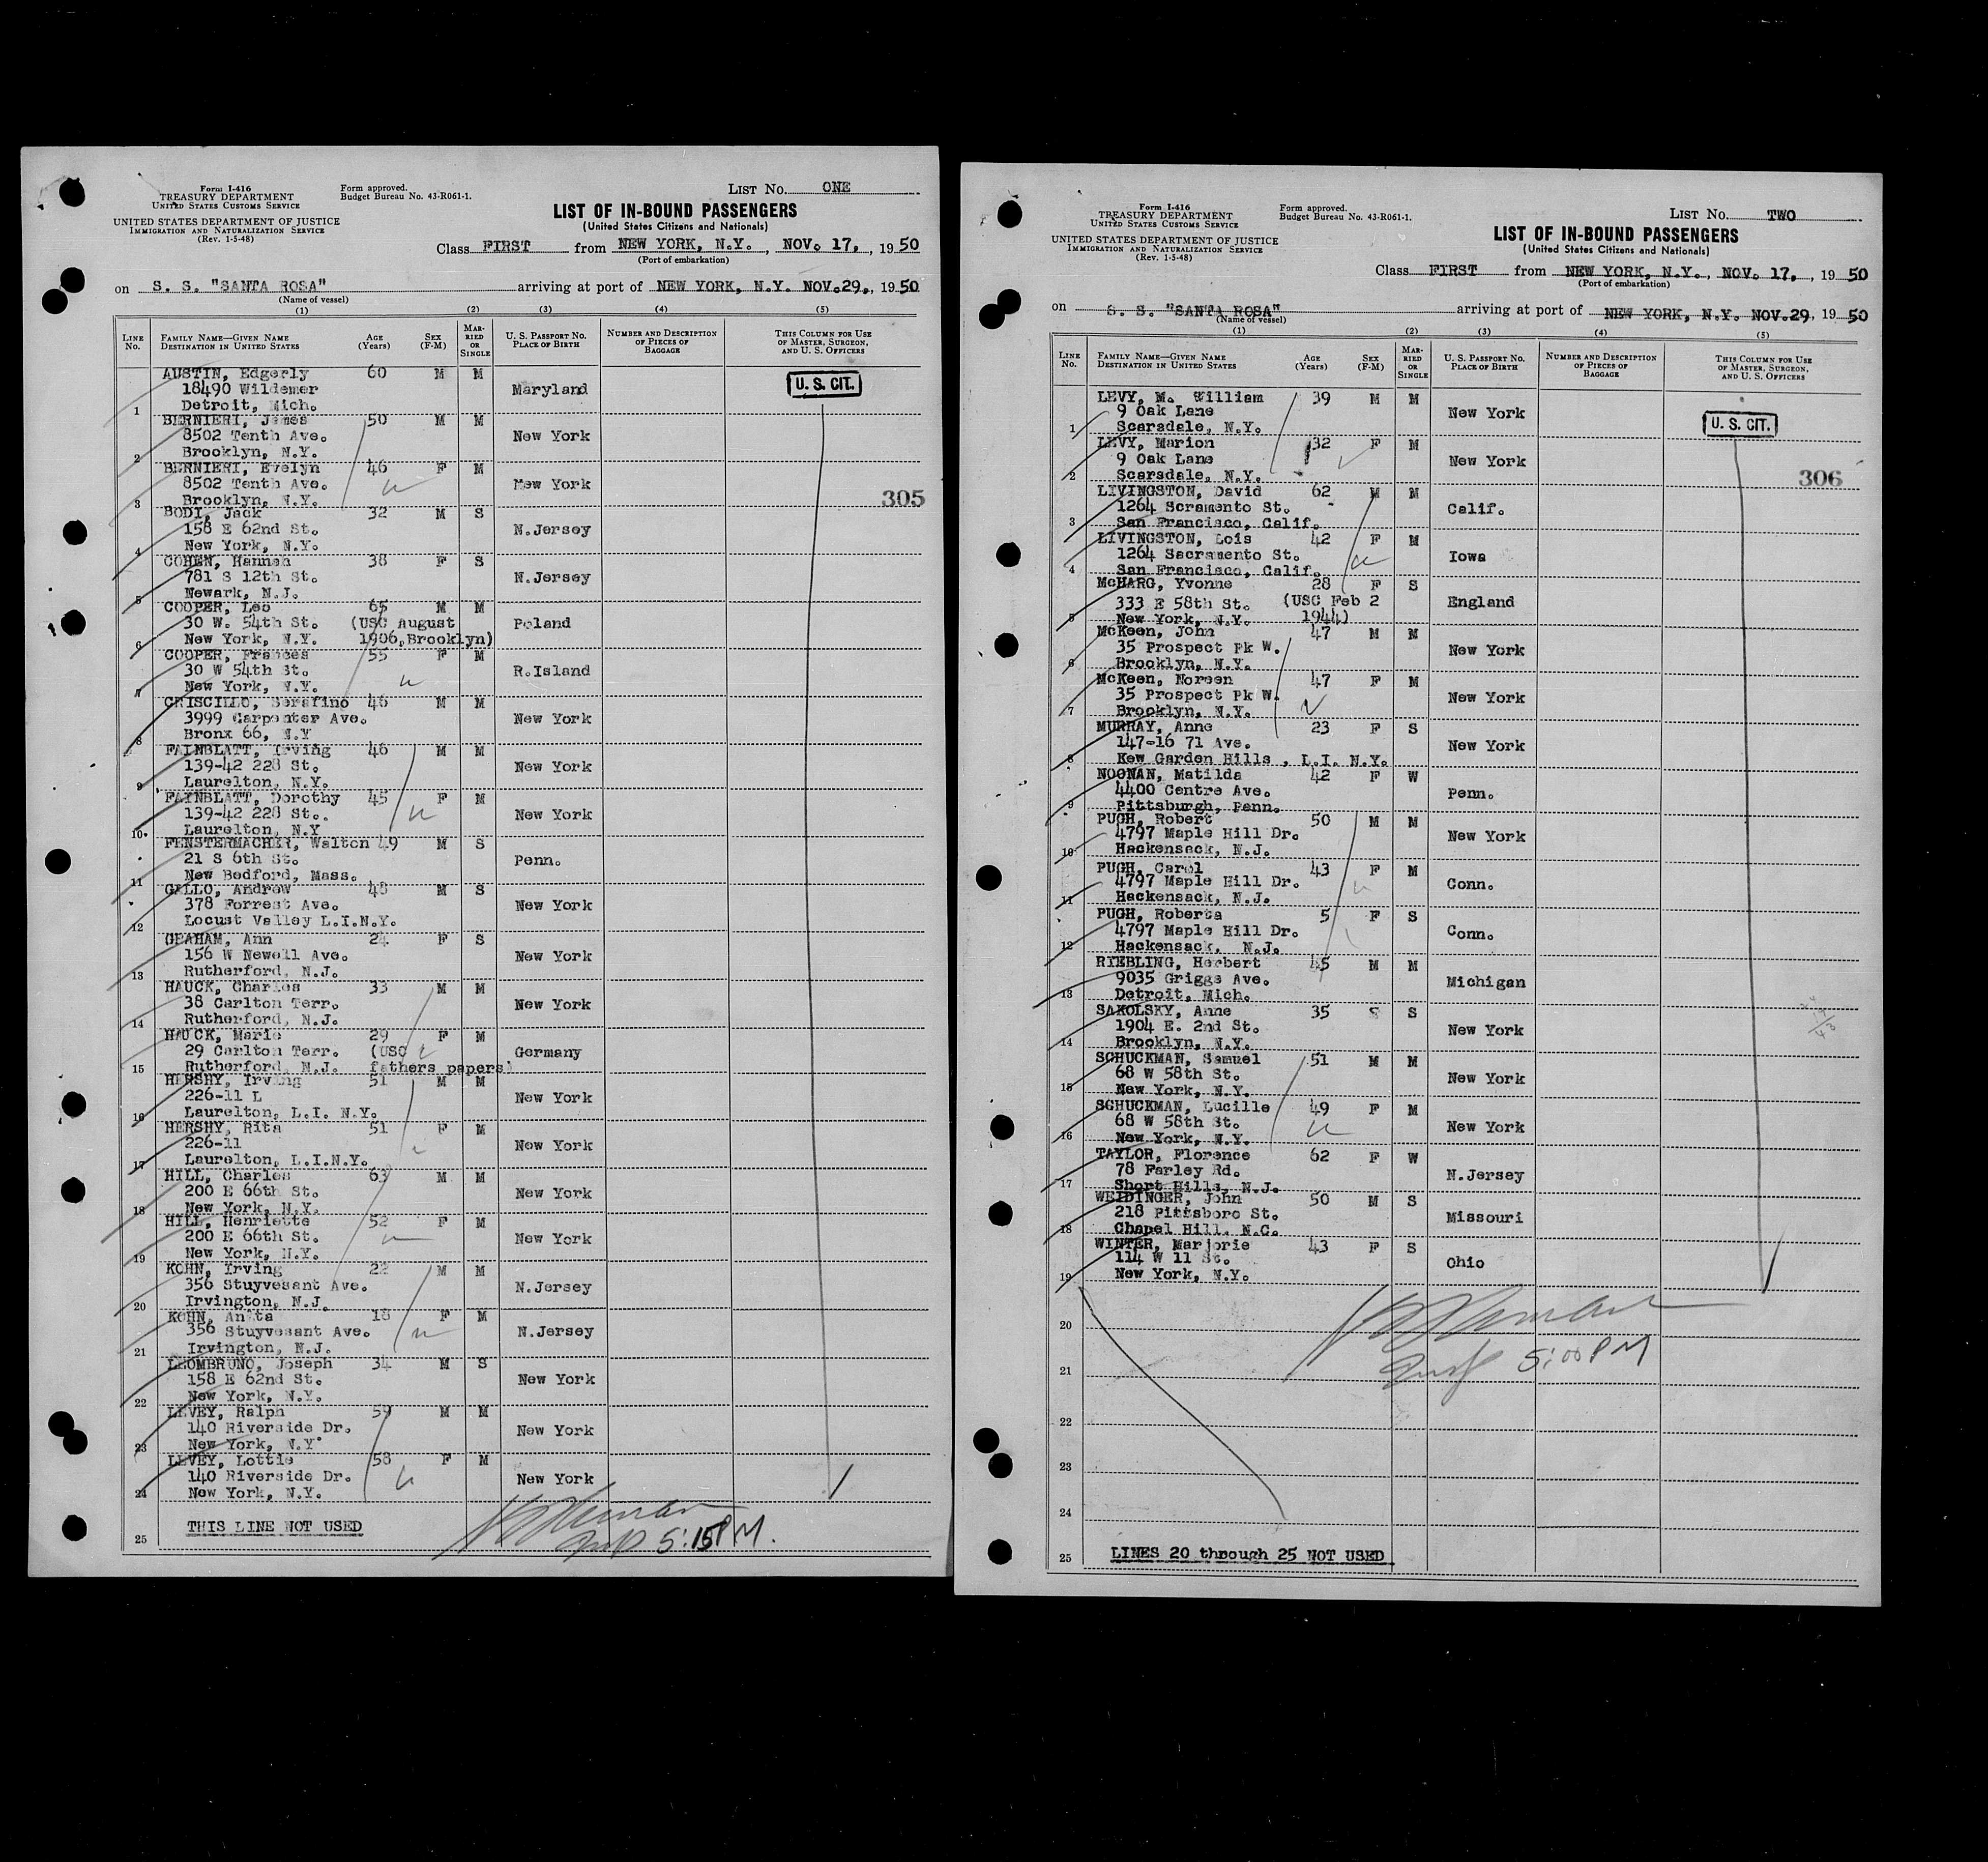 Form I-416
TREASURY DEPARTMENT
UNITED STATES CUSTOMS SERVICE
UNITED STATES DEPARTMENT OF JUSTICE
IMMIGRATION AND NATURALIZATION SERVICE
(Rev. 1-5-48)
Form approved.
Budget Bureau No. 43-R061-1.
LIST No. ONE
LIST OF IN-BOUND PASSENGERS
(United States Citizens and Nationals)
Class FIRST from NEW YORK, N.Y., NOV. 17, 1950
(Port of embarkation)
on S. S. "SANTA ROSA" arriving at port of NEW YORK, N.Y. NOV.29, 1950
(Name of vessel)
(1) (2) (3) (4) (5)
LINE No. FAMILY NAME—GIVEN NAME DESTINATION IN UNITED STATES AGE (Years) SEX (F-M) MARRIED OR SINGLE U. S. PASSPORT NO. PLACE OF BIRTH NUMBER AND DESCRIPTION OF PIECES OF BAGGAGE THIS COLUMN FOR USE OF MASTER, SURGEON, AND U. S. OFFICERS
AUSTIN, Edgerly 60 M M
18490 Wildemer Maryland U. S. CIT.
1 Detroit, Mich.
BERNIERI, James 50 M M
8502 Tenth Ave. New York
2 Brooklyn, N.Y.
BERNIERI, Evelyn 46 F M
8502 Tenth Ave. Mew York
3 Brooklyn, N.Y. 305
BODI, Jack 32 M S
158 E 62nd St. N.Jersey
4 New York, N.Y.
COHEN, Hannah 38 F S
781 S 12th St. N.Jersey
5 Newark, N.J.
COOPER, Leo 65 M M
30 W. 54th St. (USC August Poland
6 New York, N.Y. 1906,Brooklyn)
COOPER, Frances 55 F M
30 W 54th St. R.Island
7 New York, N.Y.
CRISCILLO, Serafino 46 M M
3999 Carpenter Ave. New York
8 Bronx 66, N.Y
FAINBLATT, Irving 46 M M
139-42 228 St. New York
9 Laurelton, N.Y.
FAINBLATT, Dorothy 45 F M
139-42 228 St.. New York
10 Laurelton, N.Y
FENSTERMACHER, Walton 49 M S
21 S 6th St. Penn.
11 New Bedford, Mass.
GALLO, Andrew 48 M S
378 Forrest Ave. New York
12 Locust Valley L.I.N.Y.
GRAHAM, Ann 24 F S
156 W Newell Ave. New York
13 Rutherford, N.J.
HAUCK, Charles 33 M M
38 Carlton Terr. New York
14 Rutherford, N.J.
HAUCK, Marie 29 F M
29 Carlton Terr. (USC Germany
15 Rutherford, N.J. fathers papers)
HERSHY, Irving 51 M M
226-11 L New York
16 Laurelton, L.I. N.Y.
HERSHY, Rita 51 F M
226-11 New York
17 Laurelton, L.I.N.Y.
HILL, Charles 63 M M
200 E 66th St. New York
18 New York, N.Y.
HILL, Henriette 52 F M
200 E 66th St. New York
19 New York, N.Y.
KOHN, Irving 22 M M
356 Stuyvesant Ave. N.Jersey
20 Irvington, N.J.
KOHN, Anita 18 F M
356 Stuyvesant Ave. N.Jersey
21 Irvington, N.J.
LEOMBRUNO, Joseph 34 M S
158 E 62nd St. New York
22 New York, N.Y.
LEVEY, Ralph 59 M M
140 Riverside Dr. New York
23 New York, N.Y
LEVEY, Lottie 58 F M
140 Riverside Dr. New York
24 New York, N.Y.
25 THIS LINE NOT USED
5:15PM.
Form I-416
TREASURY DEPARTMENT
UNITED STATES CUSTOMS SERVICE
UNITED STATES DEPARTMENT OF JUSTICE
IMMIGRATION AND NATURALIZATION SERVICE
(Rev. 1-5-48)
Form approved.
Budget Bureau No. 43-R061-1.
LIST No. TWO
LIST OF IN-BOUND PASSENGERS
(United States Citizens and Nationals)
Class FIRST from NEW YORK, N.Y., NOV. 17, 1950
(Port of embarkation)
on S. S. "SANTA ROSA" arriving at port of NEW YORK, N.Y. NOV.29, 1950
(Name of vessel)
(1) (2) (3) (4) (5)
LINE No. FAMILY NAME—GIVEN NAME DESTINATION IN UNITED STATES AGE (Years) SEX (F-M) MARRIED OR SINGLE U. S. PASSPORT NO. PLACE OF BIRTH NUMBER AND DESCRIPTION OF PIECES OF BAGGAGE THIS COLUMN FOR USE OF MASTER, SURGEON, AND U. S. OFFICERS
LEVY, M. William 39 M M
9 Oak Lane New York
1 Scarsdale, N.Y. U. S. CIT.
LEVY, Marion 32 F M
9 Oak Lane New York
2 Scarsdale, N.Y. 306
LIVINGSTON, David 62 M M
1264 Scramento St. Calif.
3 San Francisco, Calif.
LIVINGSTON, Lois 42 F M
1264 Sacramento St. Iowa
4 San Francisco, Calif.
McHARG, Yvonne 28 F S
333 E 58th St. (USC Feb 2 England
5 New York, N.Y. 1944)
McKeen, John 47 M M
35 Prospect Pk W. New York
6 Brooklyn, N.Y.
McKeen, Noreen 47 F M
35 Prospect Pk W. New York
7 Brooklyn, N.Y.
MURRAY, Anne 23 F S
147-16 71 Ave. New York
8 Kew Garden Hills , L.I. N.Y.
NOONAN, Matilda 42 F W
4400 Centre Ave. Penn.
9 Pittsburgh, Penn.
PUGH, Robert 50 M M
4797 Maple Hill Dr. New York
10 Hackensack, N.J.
PUGH, Carol 43 F M
4797 Maple Hill Dr. Conn.
11 Hackensack, N.J.
PUGH, Roberta 5 F S
4797 Maple Hill Dr. Conn.
12 Hackensack, N.J.
RIEBLING, Herbert 45 M M
9035 Griggs Ave. Michigan
13 Detroit, Mich.
SAKOLSKY, Anne 35 S S
1904 E. 2nd St. New York
14 Brooklyn, N.Y.
SCHUCKMAN, Samuel 51 M M
68 W 58th St. New York
15 New York, N.Y.
SCHUCKMAN, Lucille 49 F M
68 W 58th St. New York
16 New York, N.Y.
TAYLOR, Florence 62 F W
78 Farley Rd. N.Jersey
17 Short Hills, N.J.
WEIDINGER, John 50 M S
218 Pittsboro St. Missouri
18 Chapel Hill, N.C.
WINTER, Marjorie 43 F S
114 W 11 St. Ohio
19 New York, N.Y.
20
21 5:00 PM
22
23
24
25 LINES 20 through 25 NOT USED